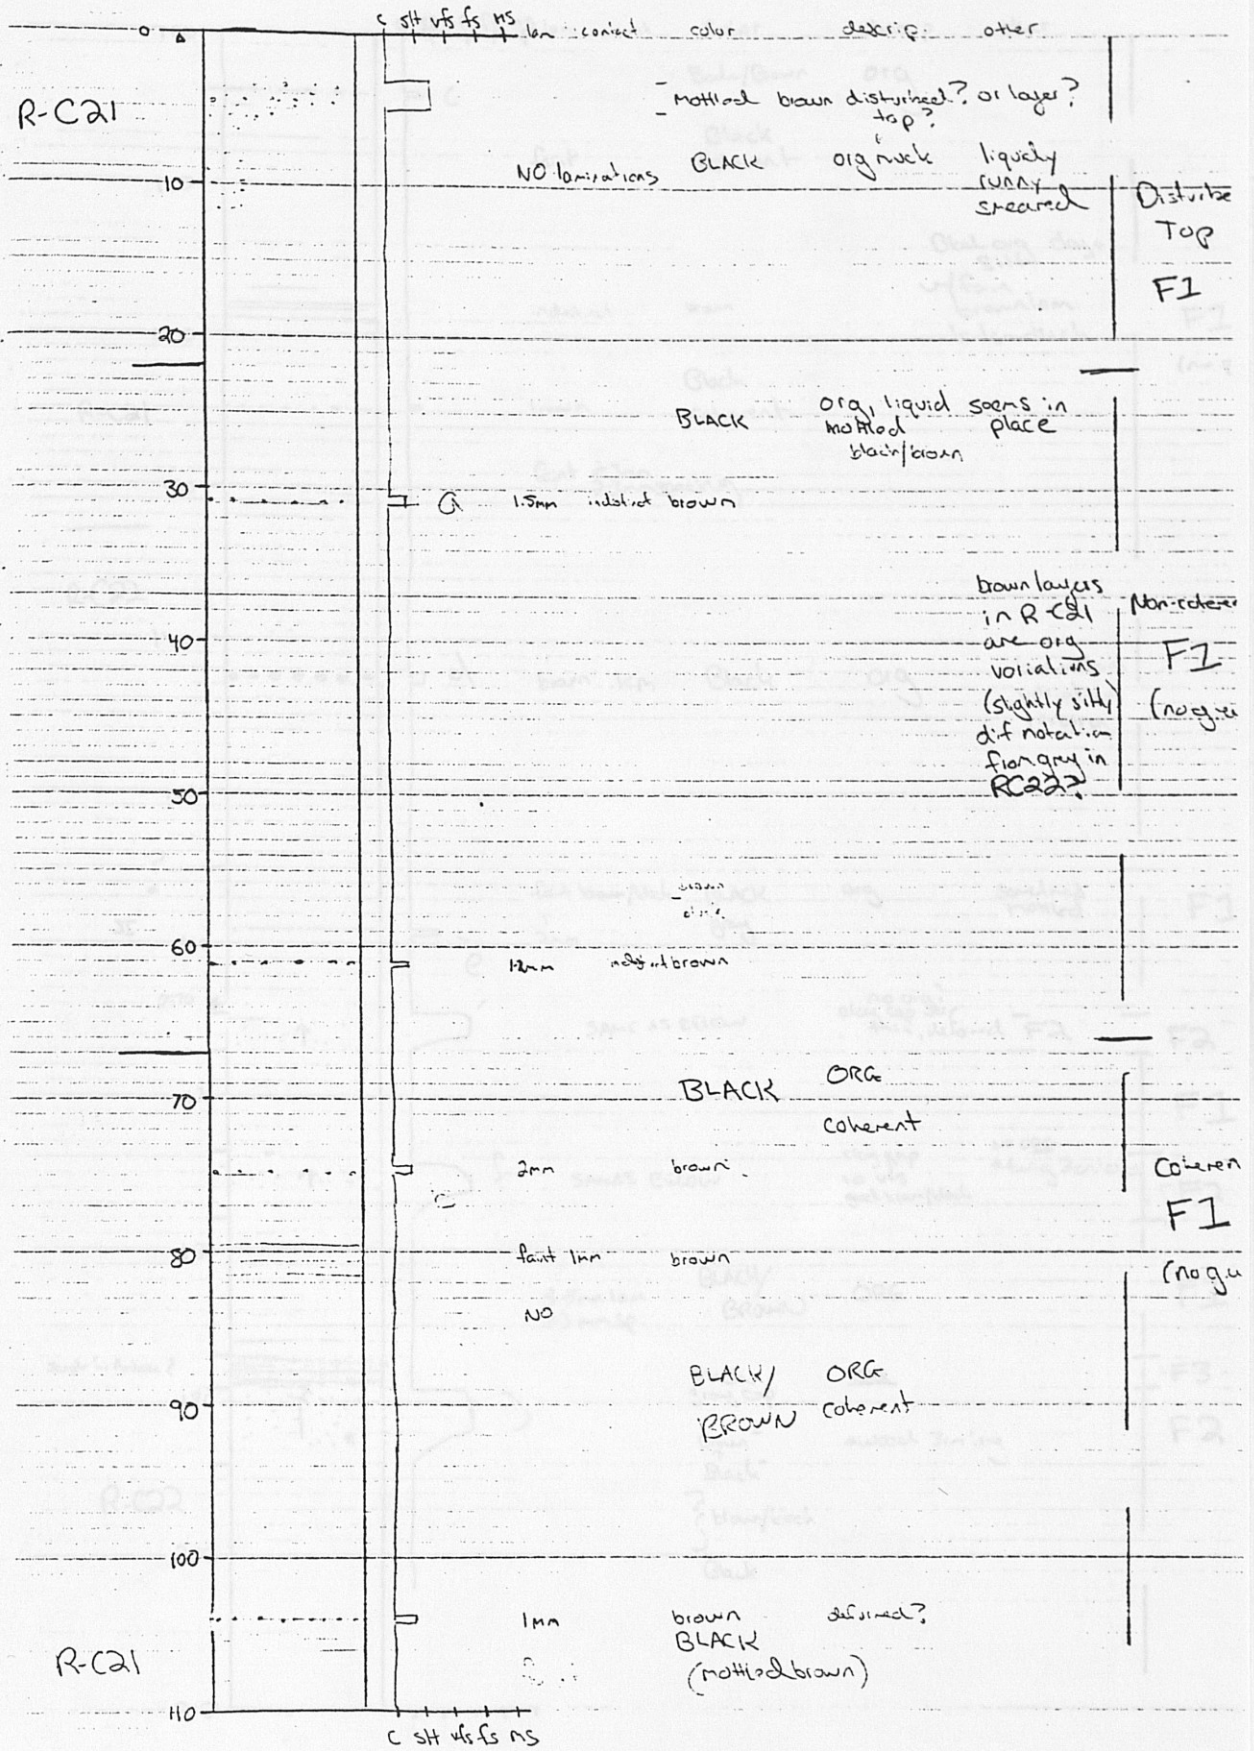 C slt vfs fs ms
0 lam contact color descrip. other
R-C21
Mottled brown disturbed? or layer?
top?
NO laminations BLACK org muck liquidy
runny
smeared
10
Disturbe
Top
F1
20
BLACK org, liquid seems in
mottled place
black/brown
30
1.5mm indistinct brown
brown layers
in R-C21
are org
variations
(slightly silty)
dif notation
from grey in
RC22?
Non-coheren
40
F1
50
brown
60
1.2mm indistinct brown
BLACK ORG
70
coherent
2mm brown
Coheren
F1
80
faint 1mm brown
NO
BLACK/ ORG
BROWN coherent
90
100
1mm brown deformed?
BLACK
(mottled brown)
R-C21
110
C slt vfs fs ms